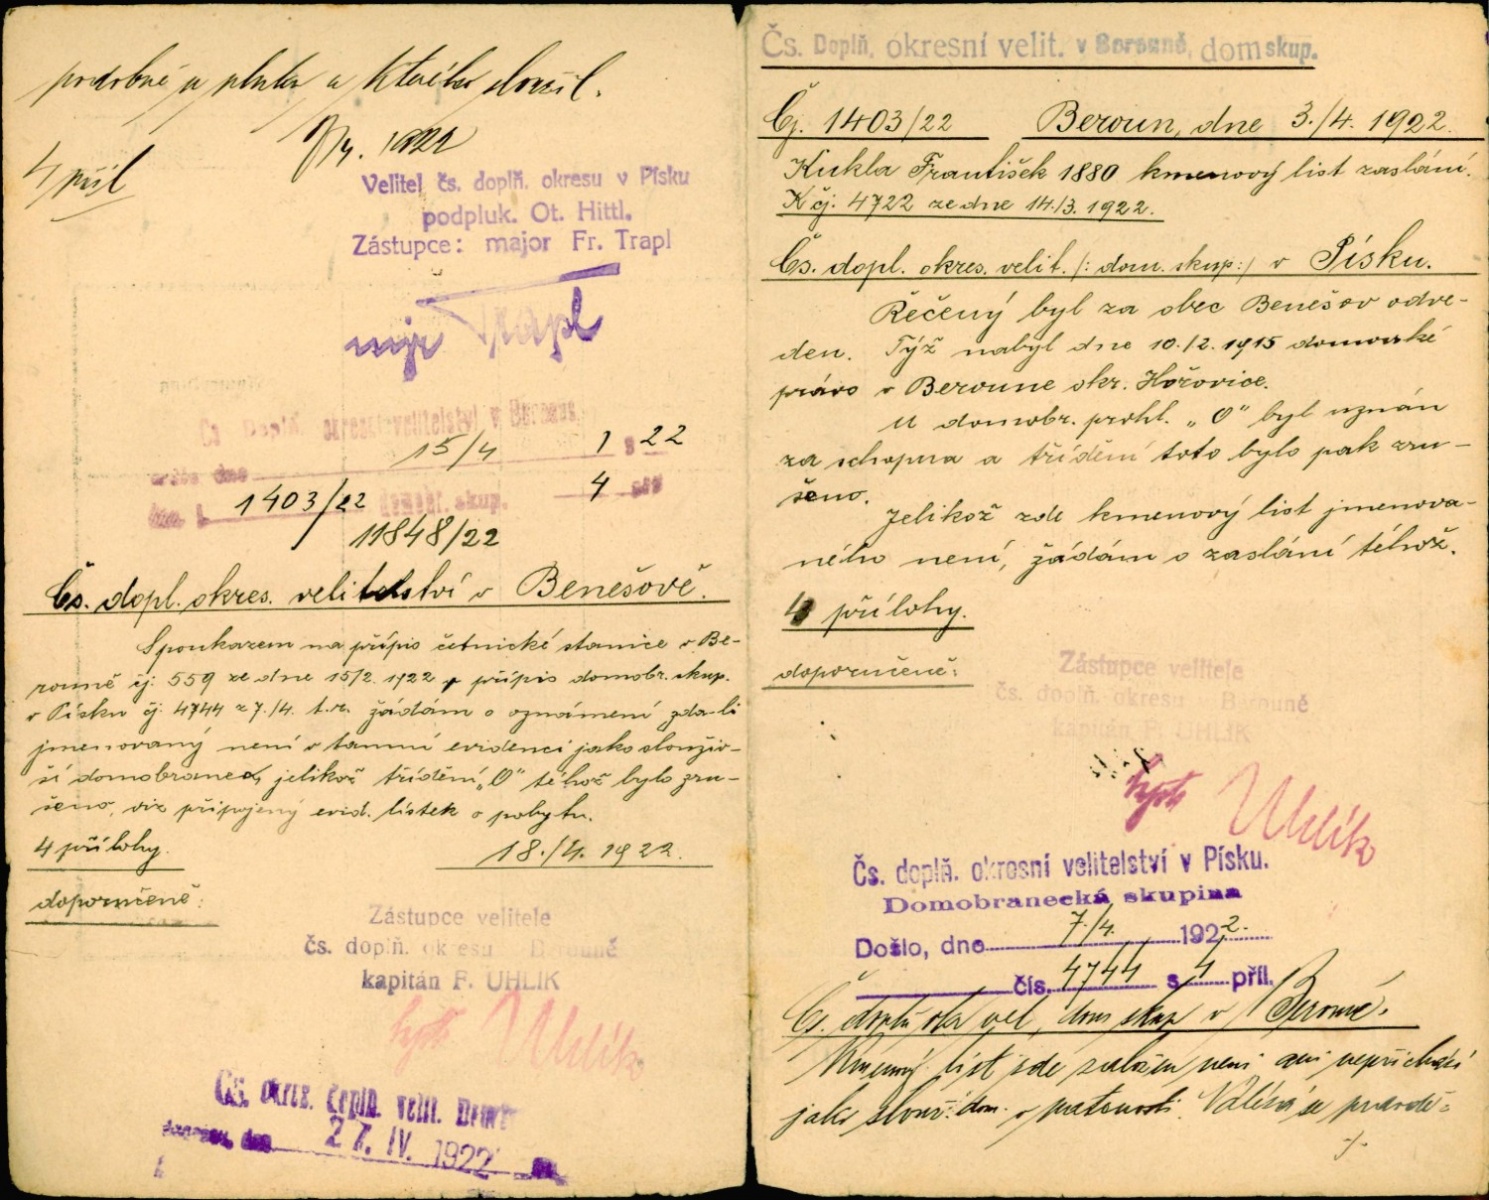 Čs. Doplň. okresní velit. v Berouně, dom skup.
Čj. 1403/22 Beroun, dne 3./4. 1922.
Kukla František 1880 kmenový list zaslání.
K čj. 4722 ze dne 14./3. 1922.
Čs. dopl. okres. velit. /: dom. skup :/ v Písku.
Řečený byl za obec Benešov odve-
den. Týž nabyl dne 10./2. 1915 domovské
právo v Beroune okr. Hořovice.
U domobr. prohl. „O" byl uznán
za schopna a třídění toto bylo pak zru-
šeno.
Jelikož zde kmenový list jmenova-
ného není, žádám o zaslání téhož.
4 přílohy.
doporučeně:
Zástupce velitele
čs. doplň. okresu Berouně
kapitán F. UHLÍK
kpt Uhlík
Čs. doplň. okresní velitelství v Písku.
Domobranecká skupina
Došlo, dne 7/4. 1922.
čís. 4744 s 4 příl.
Čs. doplň okr vel, dom skup v Berouně.
Kmenový list zde založen není ani nepřichází
jako slouž. dom. v patrnosti. Válčil se pravdě-
./.
podobně u pluku u kterého sloužil.
7/4. 1922
4 příl
Velitel čs. doplň. okresu v Písku
podpluk. Ot. Hittl.
Zástupce: major Fr. Trapl
mjr Trapl
Čs. Doplň. okresní velitelství v Beroune
došlo dne 15/4 1922
čís. j. 1403/22 domobr. skup. 4 příl
11848/22
Čs. dopl. okres. velitelství v Benešově.
S poukazem na přípis četnické stanice v Be-
rouně čj. 559 ze dne 15/2. 1922 přípis domobr. skup.
v Písku čj. 4744 z 7./4. t.r. žádám o oznámení zda-li
jmenovaný není v tamní evidenci jako sloužív-
ší domobranec, jelikož třídění „O" téhož bylo zru-
šeno, viz připojený evid. lístek o pobytu.
4 přílohy. 18./4. 1922.
doporučeně:
Zástupce velitele
čs. doplň. okresu Berouně
kapitán F. UHLÍK
kpt Uhlík
Čs. okres. dopln. velit.
dne 27. IV. 1922